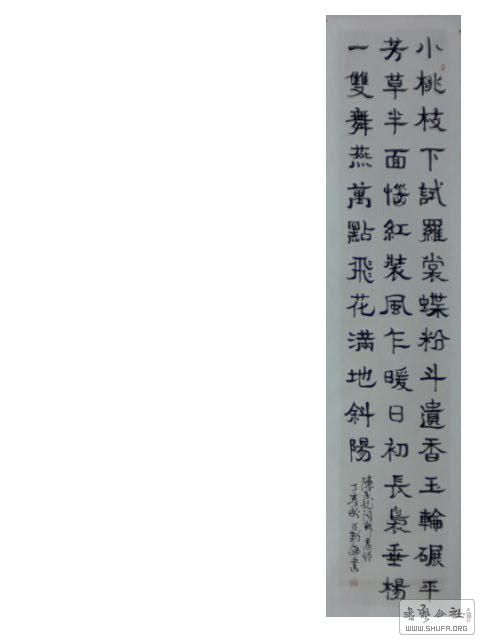 小桃枝下試羅裳蝶粉斗遺香玉輪碾平
芳草半面惱紅裝風乍暖日初長裊垂楊
一雙舞燕萬點飛花滿地斜陽
WWW.SHUFA.ORG